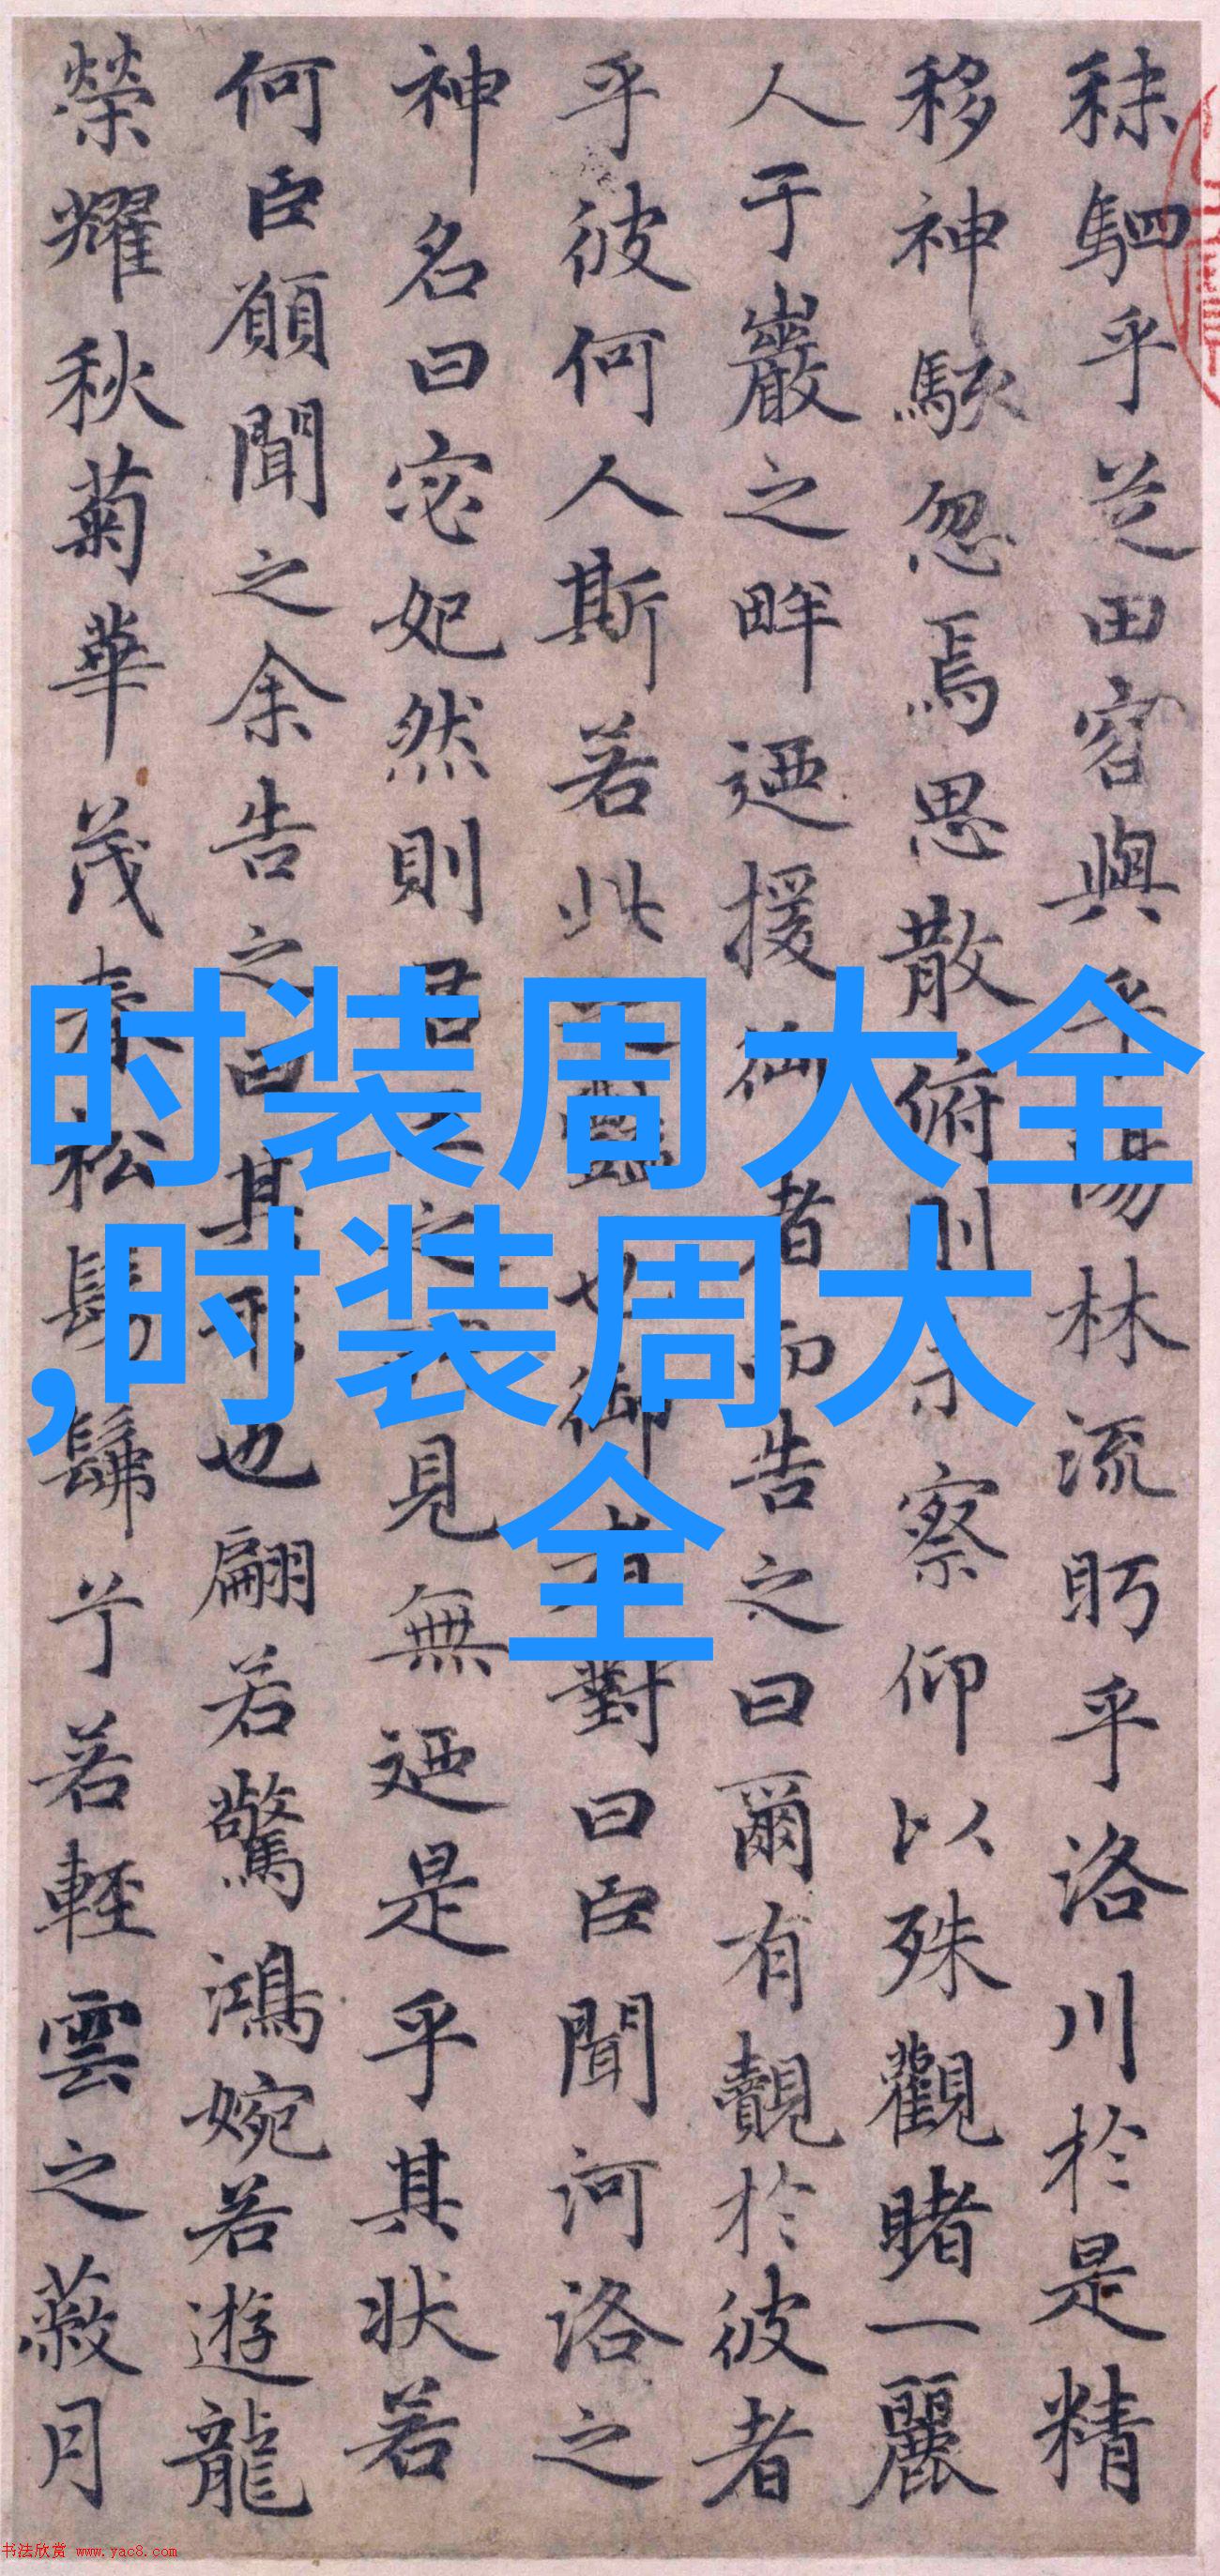 秣駟乎芝田容與乎陽林流眄乎洛川於是精
移神駭忽焉思散俯則察仰以殊觀睹一麗
人于巖之畔迺援御者而告之曰爾有覿於彼者
乎彼何人斯若此之豔也御者對曰臣聞河洛之
神名曰宓妃然則君之見無迺是乎其狀若
何臣願聞之余告之曰其形也翩若驚鴻婉若遊龍
榮耀秋菊華茂春松髣髴兮若輕雲之蔽月
时装周大全
,时装周大
全
书法欣赏 www.yac8.com